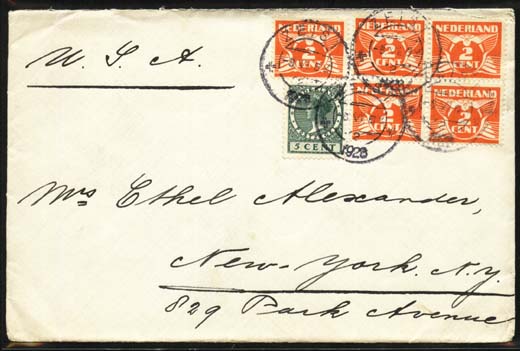 U. S. A.
NEDERLAND
2 CENT
NEDERLAND
2 CENT
NEDERLAND
2 CENT
NEDERLAND
2 CENT
NEDERLAND
2 CENT
5 CENT
1926
Mrs Ethel Alexander,
New-York. N.Y.
829 Park Avenue